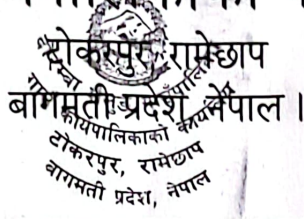 टोकरपुर, रामेछाप
बागमती प्रदेश, नेपाल ।
कार्यपालिकाको कार्यालय
टोकरपुर, रामेछाप
बागमती प्रदेश, नेपाल